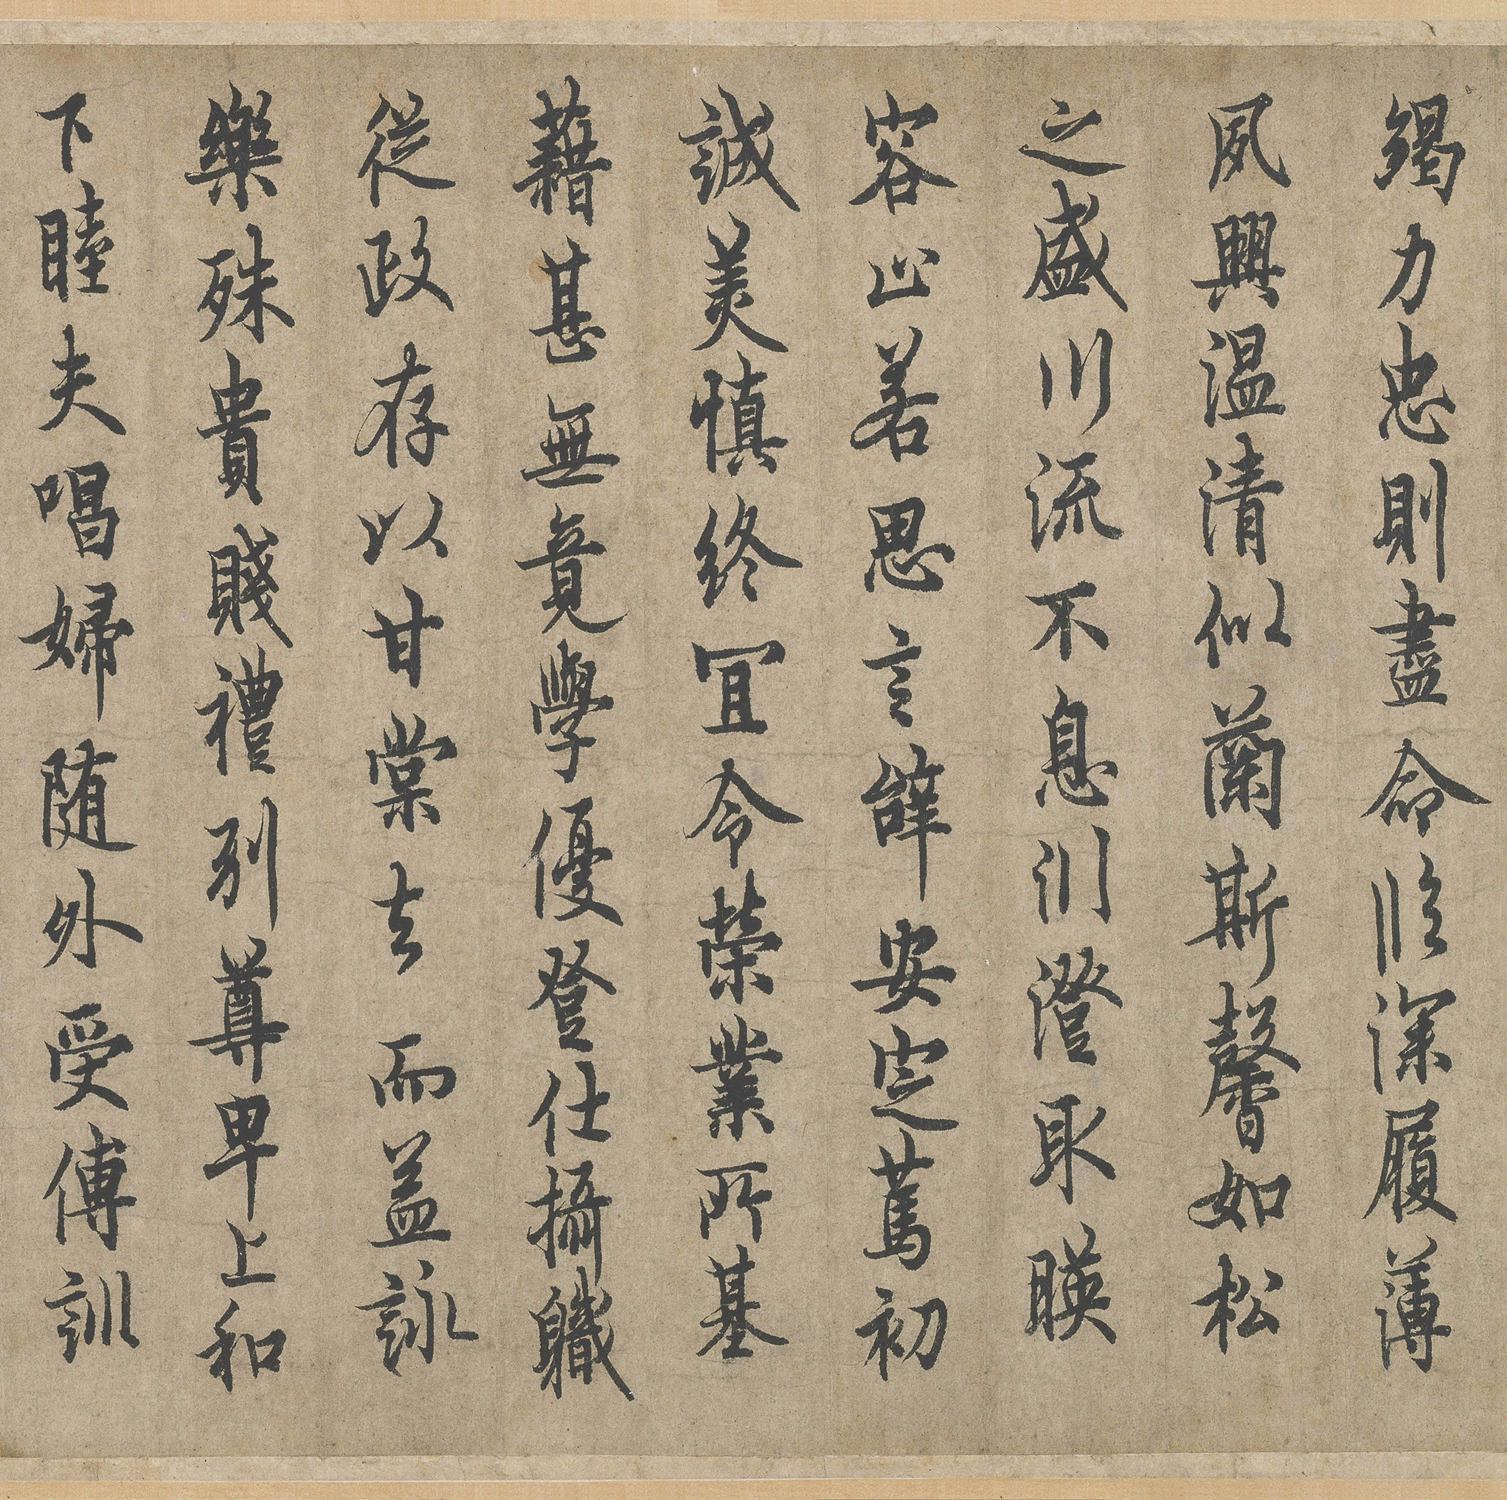 竭力忠則盡命臨深履薄
夙興温清似蘭斯馨如松
之盛川流不息川澄取暎
容止若思言辭安定篤初
誠美慎終宜令榮業所基
藉甚無竟學優登仕攝職
從政存以甘棠去而益詠
樂殊貴賤禮別尊卑上和
下睦夫唱婦随外受傅訓